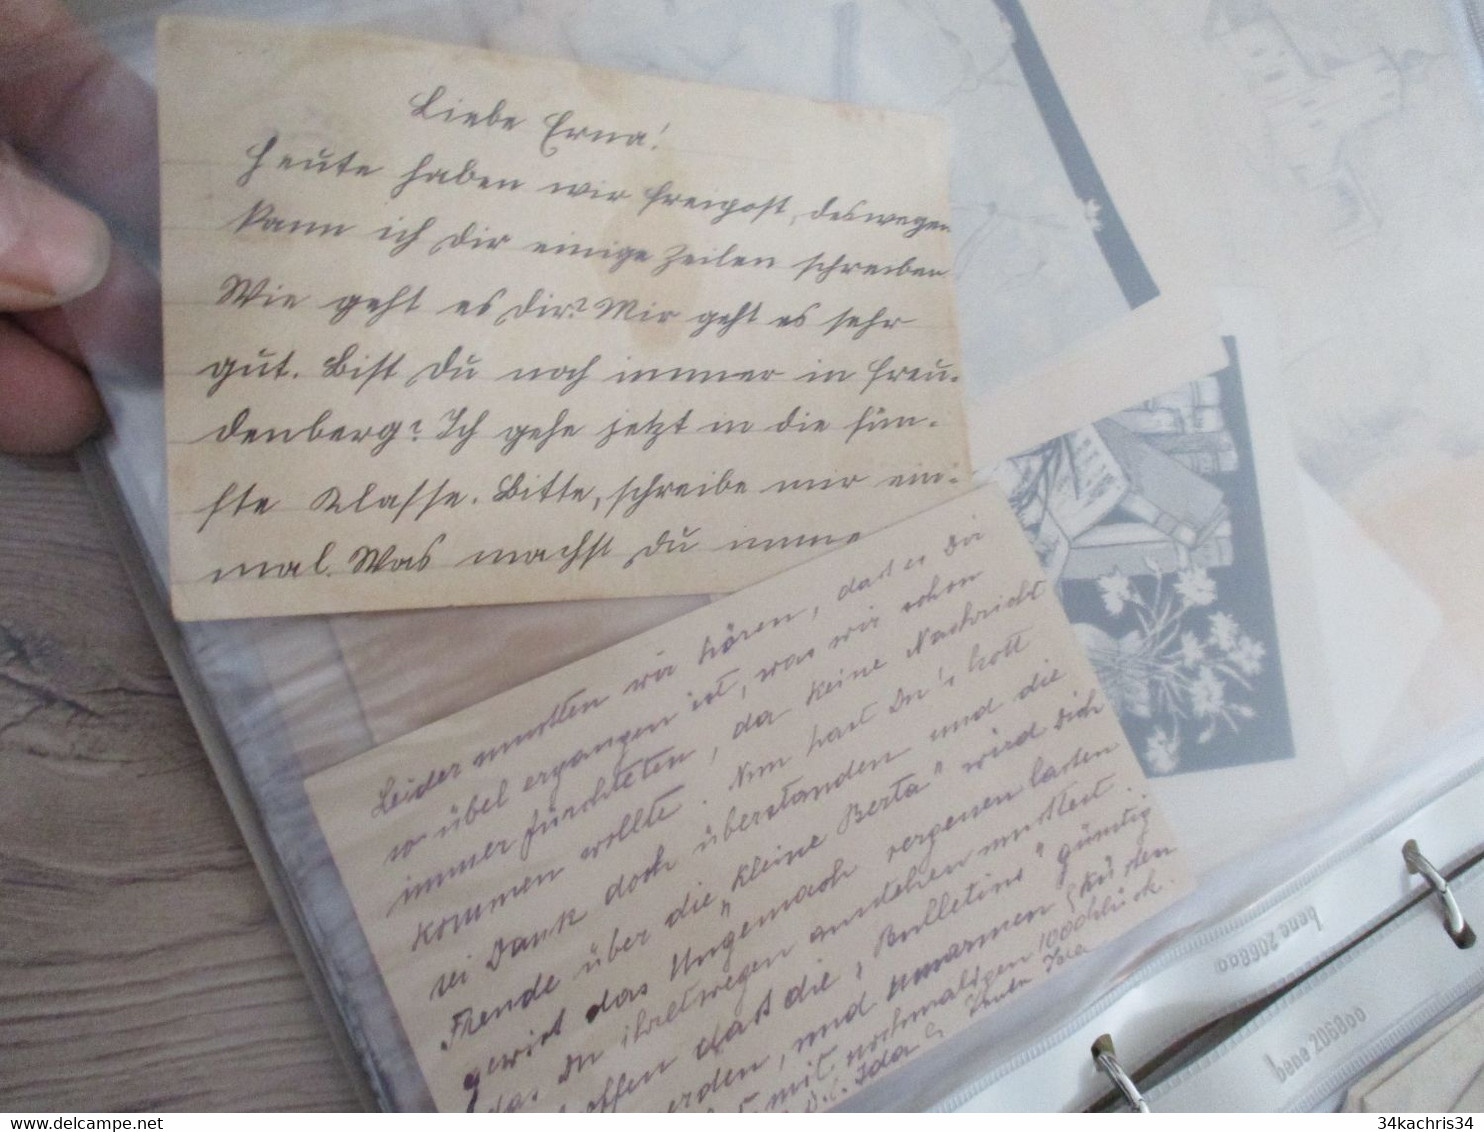 Liebe Erna!
Heute haben wir freipost, deswegen
kann ich Dir einige Zeilen schreiben
Wie geht es Dir? Mir geht es sehr
gut. Bist Du noch immer in Freu-
denberg? Ich gehe jetzt in die fün-
fte Klasse. Bitte, schreibe mir ein-
mal. Was machst Du imme
Leider mussten wir hören, dass es Dir
so übel ergangen ist, was wir schon
immer fürchteten, da keine Nachricht
kommen wollte. Nun hast Du's Gott
sei Dank doch überstanden und die
Freude über die "kleine Berta" wird Dich
gewiss das Ungemach vergessen lassen
das Du ihretwegen ausstehen musstest.
offen dass die "Bulletins" günstig
erden, und umarmen Küssen
mit nochmaligen 1000 Glück.
Ida
bene 206800
bene 206800
34kachris34